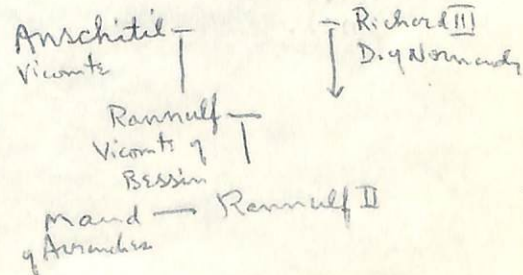 Anschitil — — Richard III
Vicomte D. of Normandy
Rannulf —
Vicomte of
Bessin
Maud — Rannulf II
of Avranches